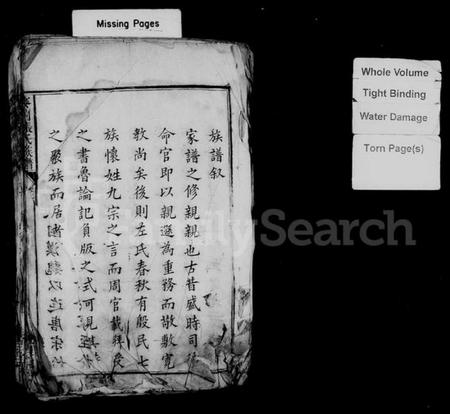 Missing Pages
Whole Volume
Tight Binding
Water Damage
Torn Page(s)
族譜叙
家譜之修親親也古昔盛時司
命官即以親遜為重務而敬敷寬
敎尚矣後則左氏春秋有殷民七
族懷姓九宗之言而周官載拜受
之書魯論記負版之式何見
之聚族而居 漢魏以迄唐宋
ilySearch